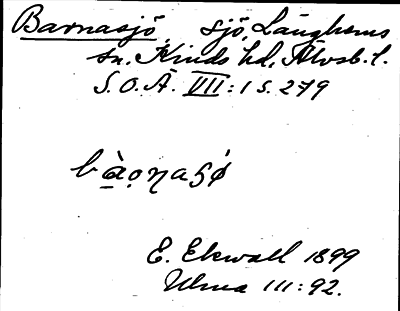 Barnasjö, sjö, Länghems
sn. Kinds hd, Älvsb. l.
S.O.Ä. VIII:1 s. 279
E. Ekwall 1899
Ulma 111:92.